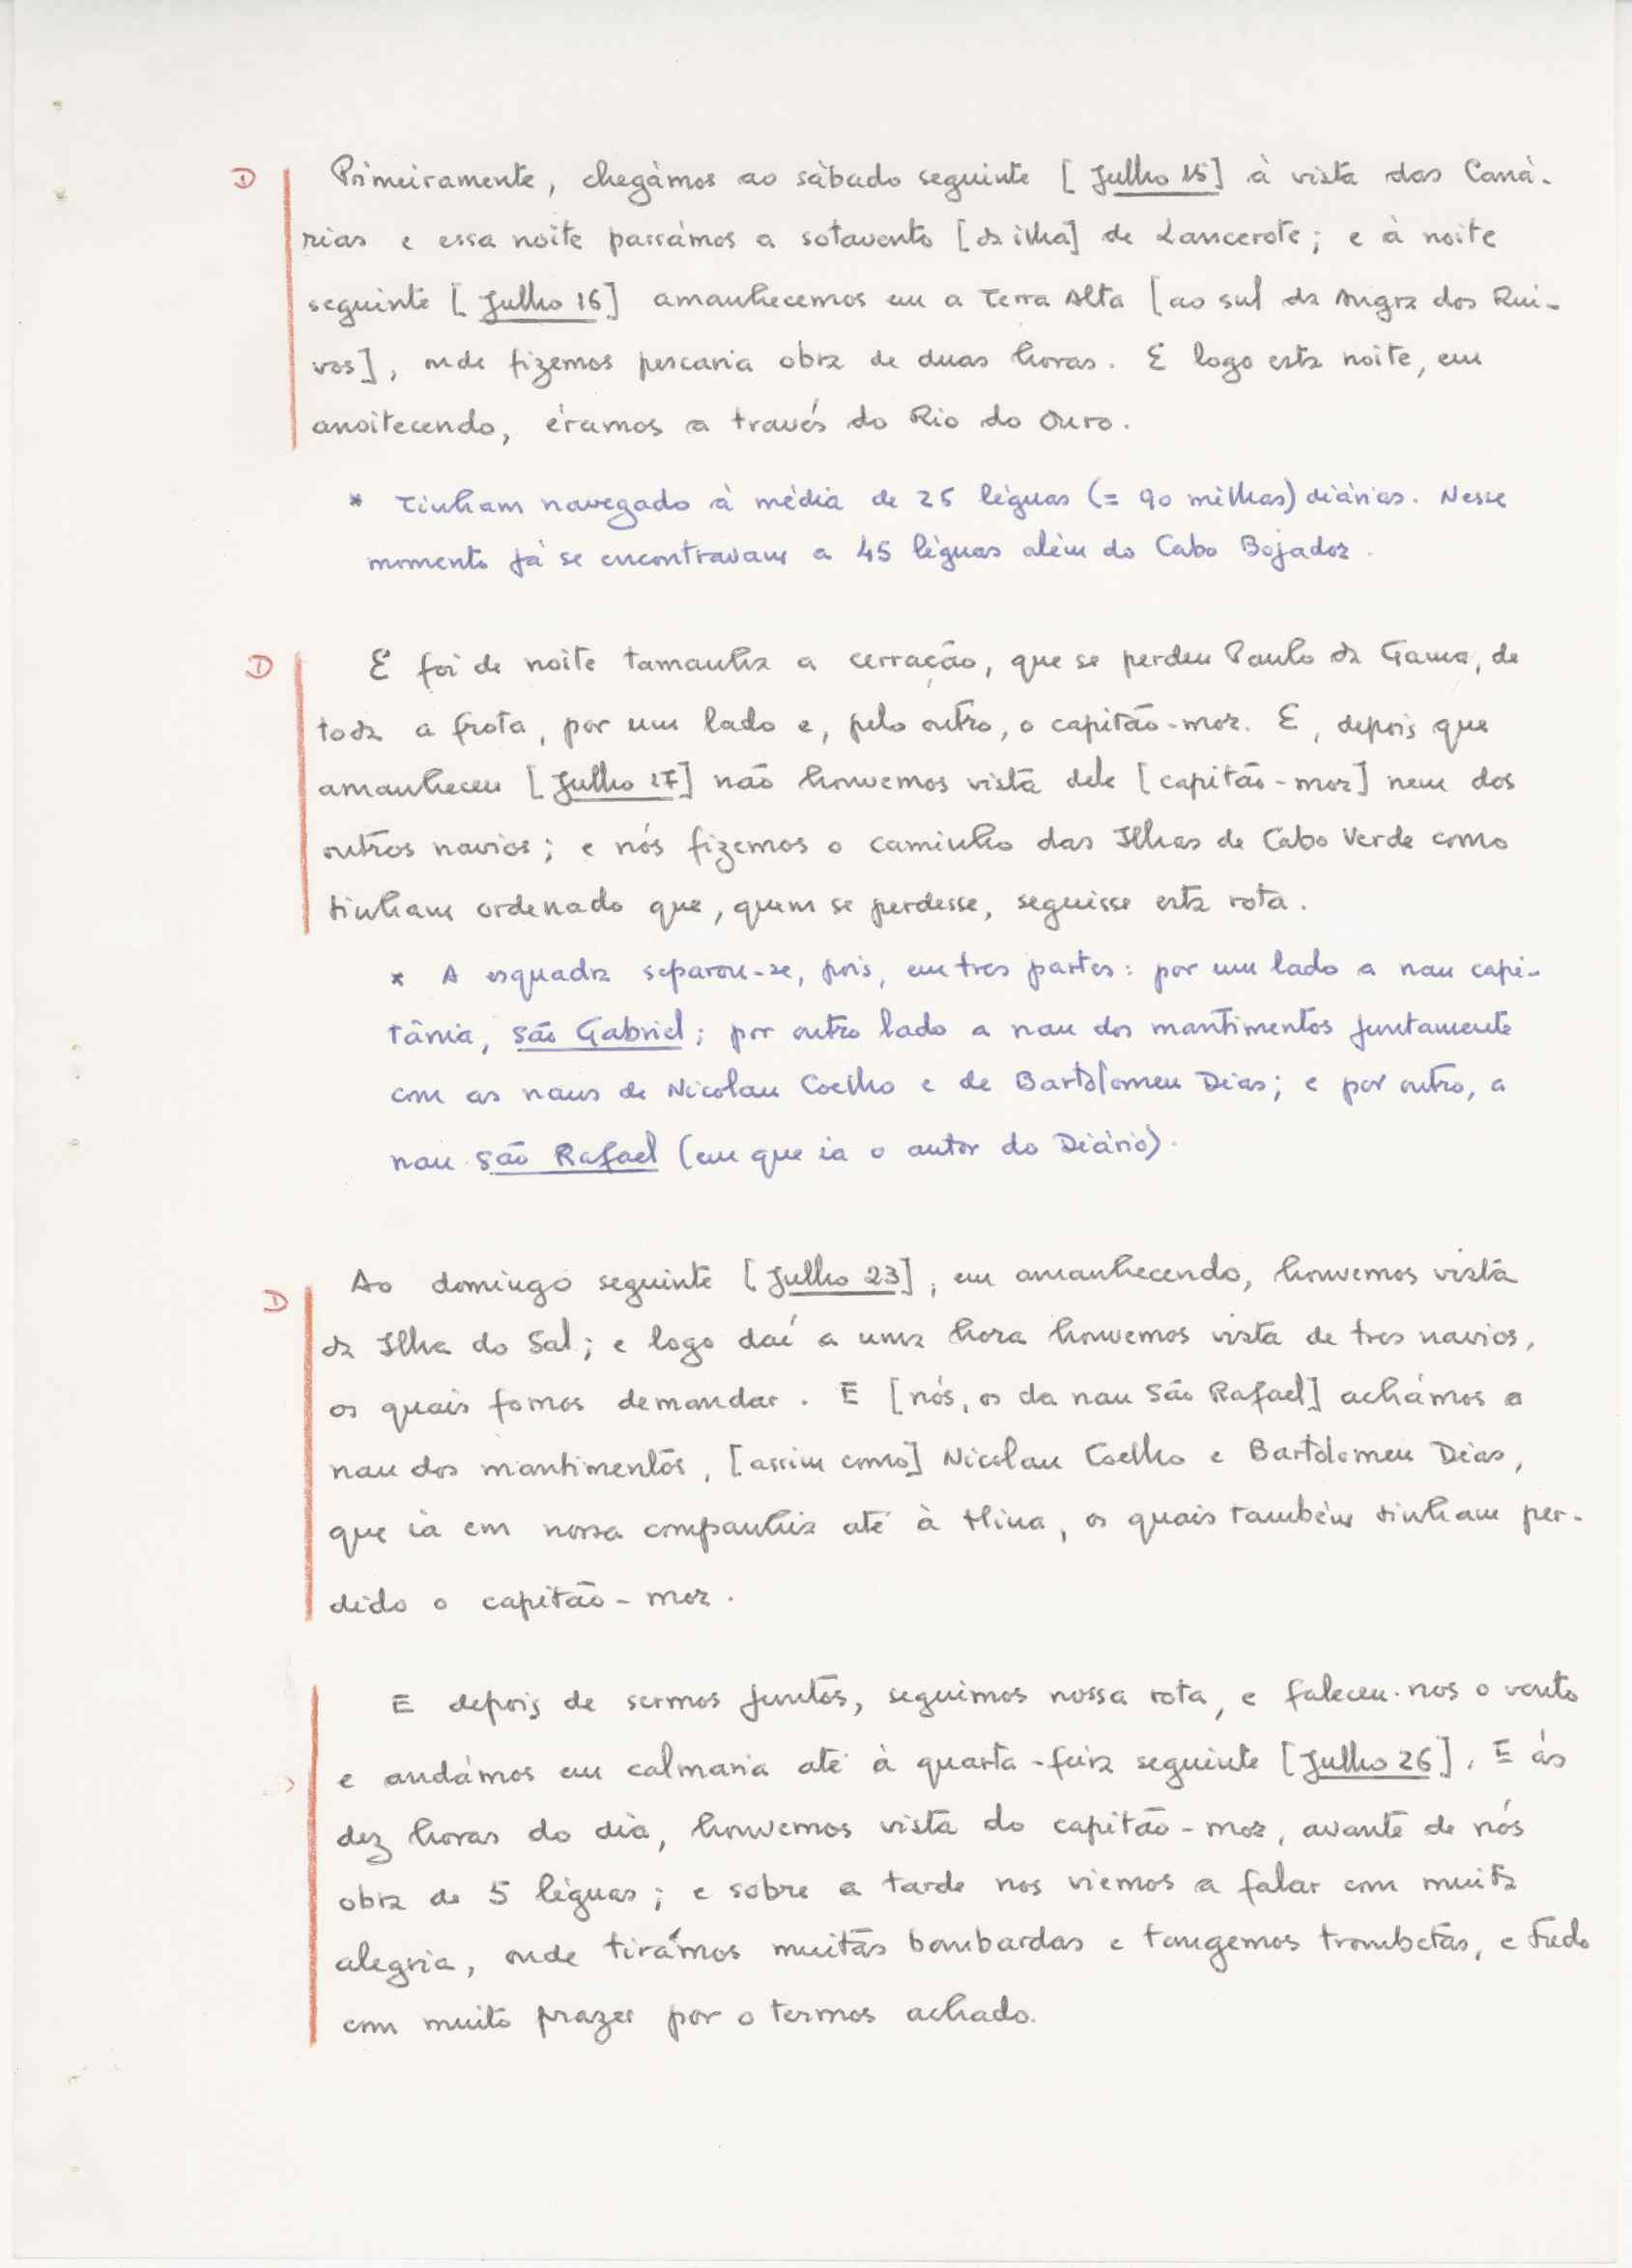 D Primeiramente, chegàmos ao sàbado seguinte [Julho 15] à vista das Caná-
rias e essa noite passámos a sotavento [da ilha] de Lancerote; e à noite
seguinte [Julho 16] amanhecemos em a Terra Alta [ao sul da Angra dos Rui-
vos], onde fizemos pescaria obra de duas horas. E logo esta noite, em
anoitecendo, éramos a través do Rio do Ouro.
* Tinham navegado à média de 25 léguas (= 90 milhas) diárias. Nesse
momento já se encontravam a 45 léguas além do Cabo Bojador.
D E foi de noite tamanha a cerração, que se perdeu Paulo da Gama, de
toda a frota, por um lado e, pelo outro, o capitão-mor. E, depois que
amanheceu [Julho 17] não houvemos vista dele [capitão-mor] nem dos
outros navios; e nós fizemos o caminho das Ilhas de Cabo Verde como
tinham ordenado que, quem se perdesse, seguisse esta rota.
* A esquadra separou-se, pois, em tres partes: por um lado a nau capi-
tânia, São Gabriel; por outro lado a nau dos mantimentos juntamente
com as naus de Nicolau Coelho e de Bartolomeu Dias; e por outro, a
nau São Rafael (em que ia o autor do Diário).
D Ao domingo seguinte [Julho 23], em amanhecendo, houvemos vista
da Ilha do Sal; e logo daí a uma hora houvemos vista de tres navios,
os quais fomos demandar. E [nós, os da nau São Rafael] achámos a
nau dos mantimentos, [assim como] Nicolau Coelho e Bartolomeu Dias,
que ia em nossa companhia até à Mina, os quais também tinham per-
dido o capitão-mor.
E depois de sermos juntos, seguimos nossa rota, e faleceu-nos o vento
e andámos em calmaria até à quarta-feira seguinte [Julho 26]. E ás
dez horas do dia, houvemos vista do capitão-mor, avante de nós
obra de 5 léguas; e sobre a tarde nos viemos a falar com muita
alegria, onde tirámos muitas bombardas e tangemos trombetas, e tudo
com muito prazer por o termos achado.